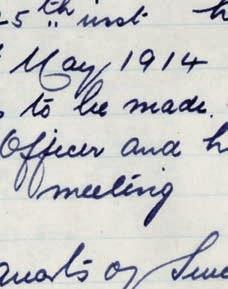 5th inst h
May 1914
s to be made.
Officer and h
meeting
of